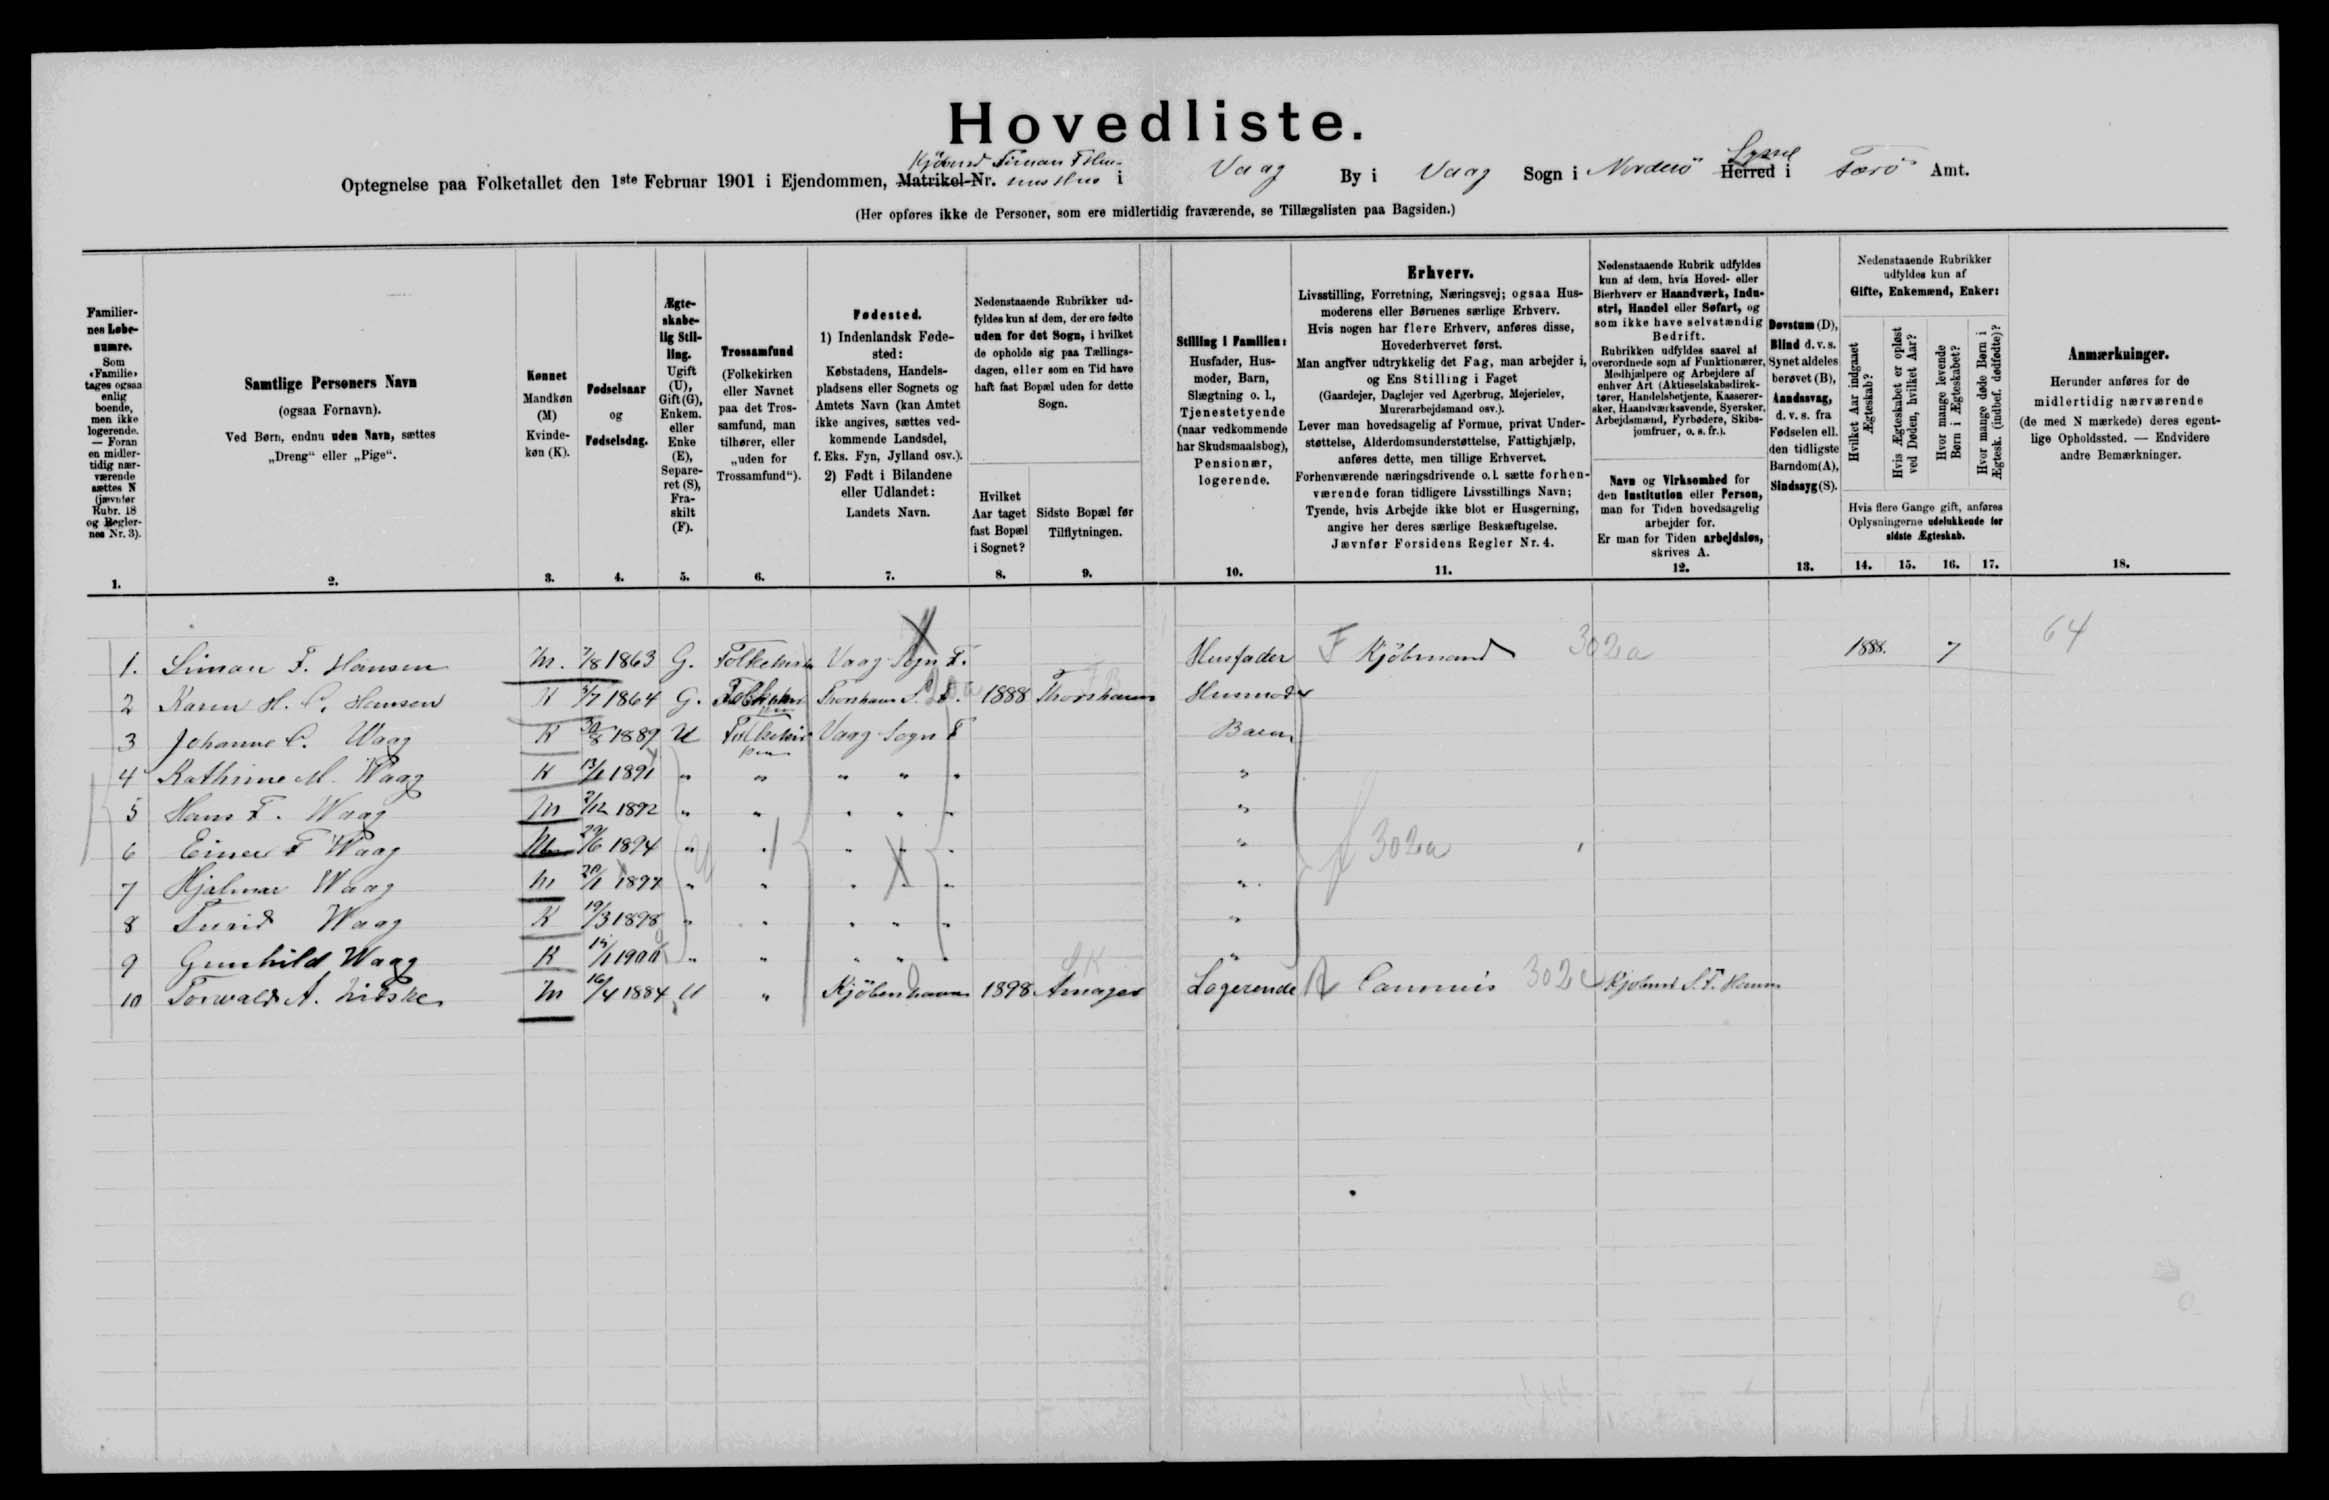 Hovedliste.
Kjöbmd Simon F Han-
Optegnelse paa Folketallet den 1ste Februar 1901 i Ejendommen, Matrikel-Nr. sens Hus i Vaag By i Vaag Sogn i Norderö Herred i Færö Amt.
Syssel
(Her opføres ikke de Personer, som ere midlertidig fraværende, se Tillægslisten paa Bagsiden.)
Familier-
nes Løbe-
numre.
Som
«Familie»
tages ogsaa
enlig
boende,
men ikke
logerende.
— Foran
en midler-
tidig nær-
værende
sættes N
(jævnfør
Rubr. 18
og Regler-
nes Nr. 3).
1.
Samtlige Personers Navn
(ogsaa Fornavn).
Ved Børn, endnu uden Navn, sættes
„Dreng“ eller „Pige“.
2.
Kønnet
Mandkøn
(M)
Kvinde-
køn (K).
3.
Fødselsaar
og
Fødselsdag.
4.
Ægte-
skabe-
lig Stil-
ling.
Ugift
(U),
Gift (G),
Enkem.
eller
Enke
(E),
Separe-
ret (S),
Fra-
skilt
(F).
5.
Trossamfund
(Folkekirken
eller Navnet
paa det Tros-
samfund, man
tilhører, eller
„uden for
Trossamfund“).
6.
Fødested.
1) Indenlandsk Føde-
sted:
Købstadens, Handels-
pladsens eller Sognets og
Amtets Navn (kan Amtet
ikke angives, sættes ved-
kommende Landsdel,
f. Eks. Fyn, Jylland osv.).
2) Født i Bilandene
eller Udlandet:
Landets Navn.
7.
Nedenstaaende Rubrikker ud-
fyldes kun af dem, der ere fødte
uden for det Sogn, i hvilket
de opholde sig paa Tællings-
dagen, eller som en Tid have
haft fast Bopæl uden for dette
Sogn.
Hvilket
Aar taget
fast Bopæl
i Sognet?
8.
Sidste Bopæl før
Tilflytningen.
9.
Stilling i Familien:
Husfader, Hus-
moder, Barn,
Slægtning o. l.,
Tjenestetyende
(naar vedkommende
har Skudsmaalsbog),
Pensionær,
logerende.
10.
Erhverv.
Livsstilling, Forretning, Næringsvej; ogsaa Hus-
moderens eller Børnenes særlige Erhverv.
Hvis nogen har flere Erhverv, anføres disse,
Hovederhvervet først.
Man angiver udtrykkelig det Fag, man arbejder i,
og Ens Stilling i Faget
(Gaardejer, Daglejer ved Agerbrug, Mejerielev,
Murerarbejdsmand osv.).
Lever man hovedsagelig af Formue, privat Under-
støttelse, Alderdomsunderstøttelse, Fattighjælp,
anføres dette, men tillige Erhvervet.
Forhenværende næringsdrivende o. l. sætte forhen-
værende foran tidligere Livsstillings Navn;
Tyende, hvis Arbejde ikke blot er Husgerning,
angive her deres særlige Beskæftigelse.
Jævnfør Forsidens Regler Nr. 4.
11.
Nedenstaaende Rubrik udfyldes
kun af dem, hvis Hoved- eller
Bierhverv er Haandværk, Indu-
stri, Handel eller Søfart, og
som ikke have selvstændig
Bedrift.
Rubrikken udfyldes saavel af
overordnede som af Funktionærer,
Medhjælpere og Arbejdere af
enhver Art (Aktieselskabsdirek-
tører, Handelsbetjente, Kasserer-
sker, Haandværkssvende, Syersker,
Arbejdsmænd, Fyrbødere, Skibs-
jomfruer, o. s. fr.).
Navn og Virksomhed for
den Institution eller Person,
man for Tiden hovedsagelig
arbejder for.
Er man for Tiden arbejdsløs,
skrives A.
12.
Døvstum (D),
Blind d. v. s.
Synet aldeles
berøvet (B),
Aandssvag,
d. v. s. fra
Fødselen ell.
den tidligste
Barndom(A),
Sindssyg (S).
13.
Nedenstaaende Rubrikker
udfyldes kun af
Gifte, Enkemænd, Enker:
Hvilket Aar indgaaet
Ægteskab?
Hvis Ægteskabet er opløst
ved Døden, hvilket Aar?
Hvor mange levende
Børn i Ægteskabet?
Hvor mange døde Børn i
Ægtesk. (indbef. dødfødte)?
Hvis flere Gange gift, anføres
Oplysningerne udelukkende for
sidste Ægteskab.
14. 15. 16. 17.
Anmærkninger.
Herunder anføres for de
midlertidig nærværende
(de med N mærkede) deres egent-
lige Opholdssted. — Endvidere
andre Bemærkninger.
18.
1. Simon F. Hansen M. 7/8 1863 G. Folkekirken Vaag Sogn F. Husfader F Kjöbmand 302a 1888. 7 64
2 Karen H. C. Hansen K 1864 G. Folkekirken Thorshavn S. F. 1888 Thorshavn Husmoder
3 Johanne C. Waag K 30/8 1889 U Folkekirken Vaag Sogn F Barn
4 Kathrine M. Waag K 13/1 1891 " " " " " "
5 Hans F. Waag M 2/12 1892 " " " " " "
6 Einer F Waag M 29/6 1894 " " " " " " 302a
7 Hjalmar Waag M 20/1 1897 " " " " " "
8 Turid Waag K 19/3 1898 " " " " " "
9 Gunhild Waag K 1900 " " " " " "
10 Torwald A. M 16/4 1884 U " Kjöbenhavn 1898 Amager Logerende Commis 302 Kjöbmd S. F. Hansen